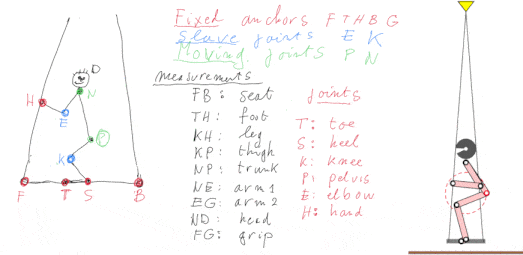 Fixed anchors F T H B G
Slave joints E K
Moving joints P N
measurements
FB: seat
TH: foot
KH: leg
KP: thigh
NP: trunk
NE: arm1
EG: arm2
ND: head
FG: grip
joints
T: toe
S: heel
K: knee
P: pelvis
E: elbow
H: hand
D
H
N
E
P
K
F
T
S
B